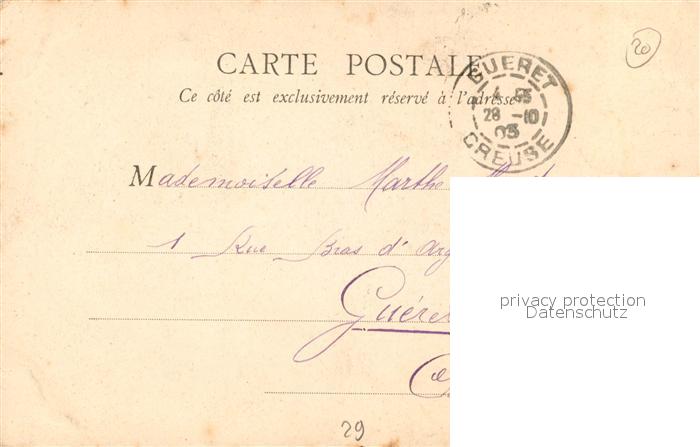 20
CARTE POSTALE
Ce côté est exclusivement réservé à l'adresse
GUERET
4 55
28 -10
03
CREUSE
Mademoiselle Marthe
1 Rue Bras d'Arg
Guéret
privacy protection
Datenschutz
29